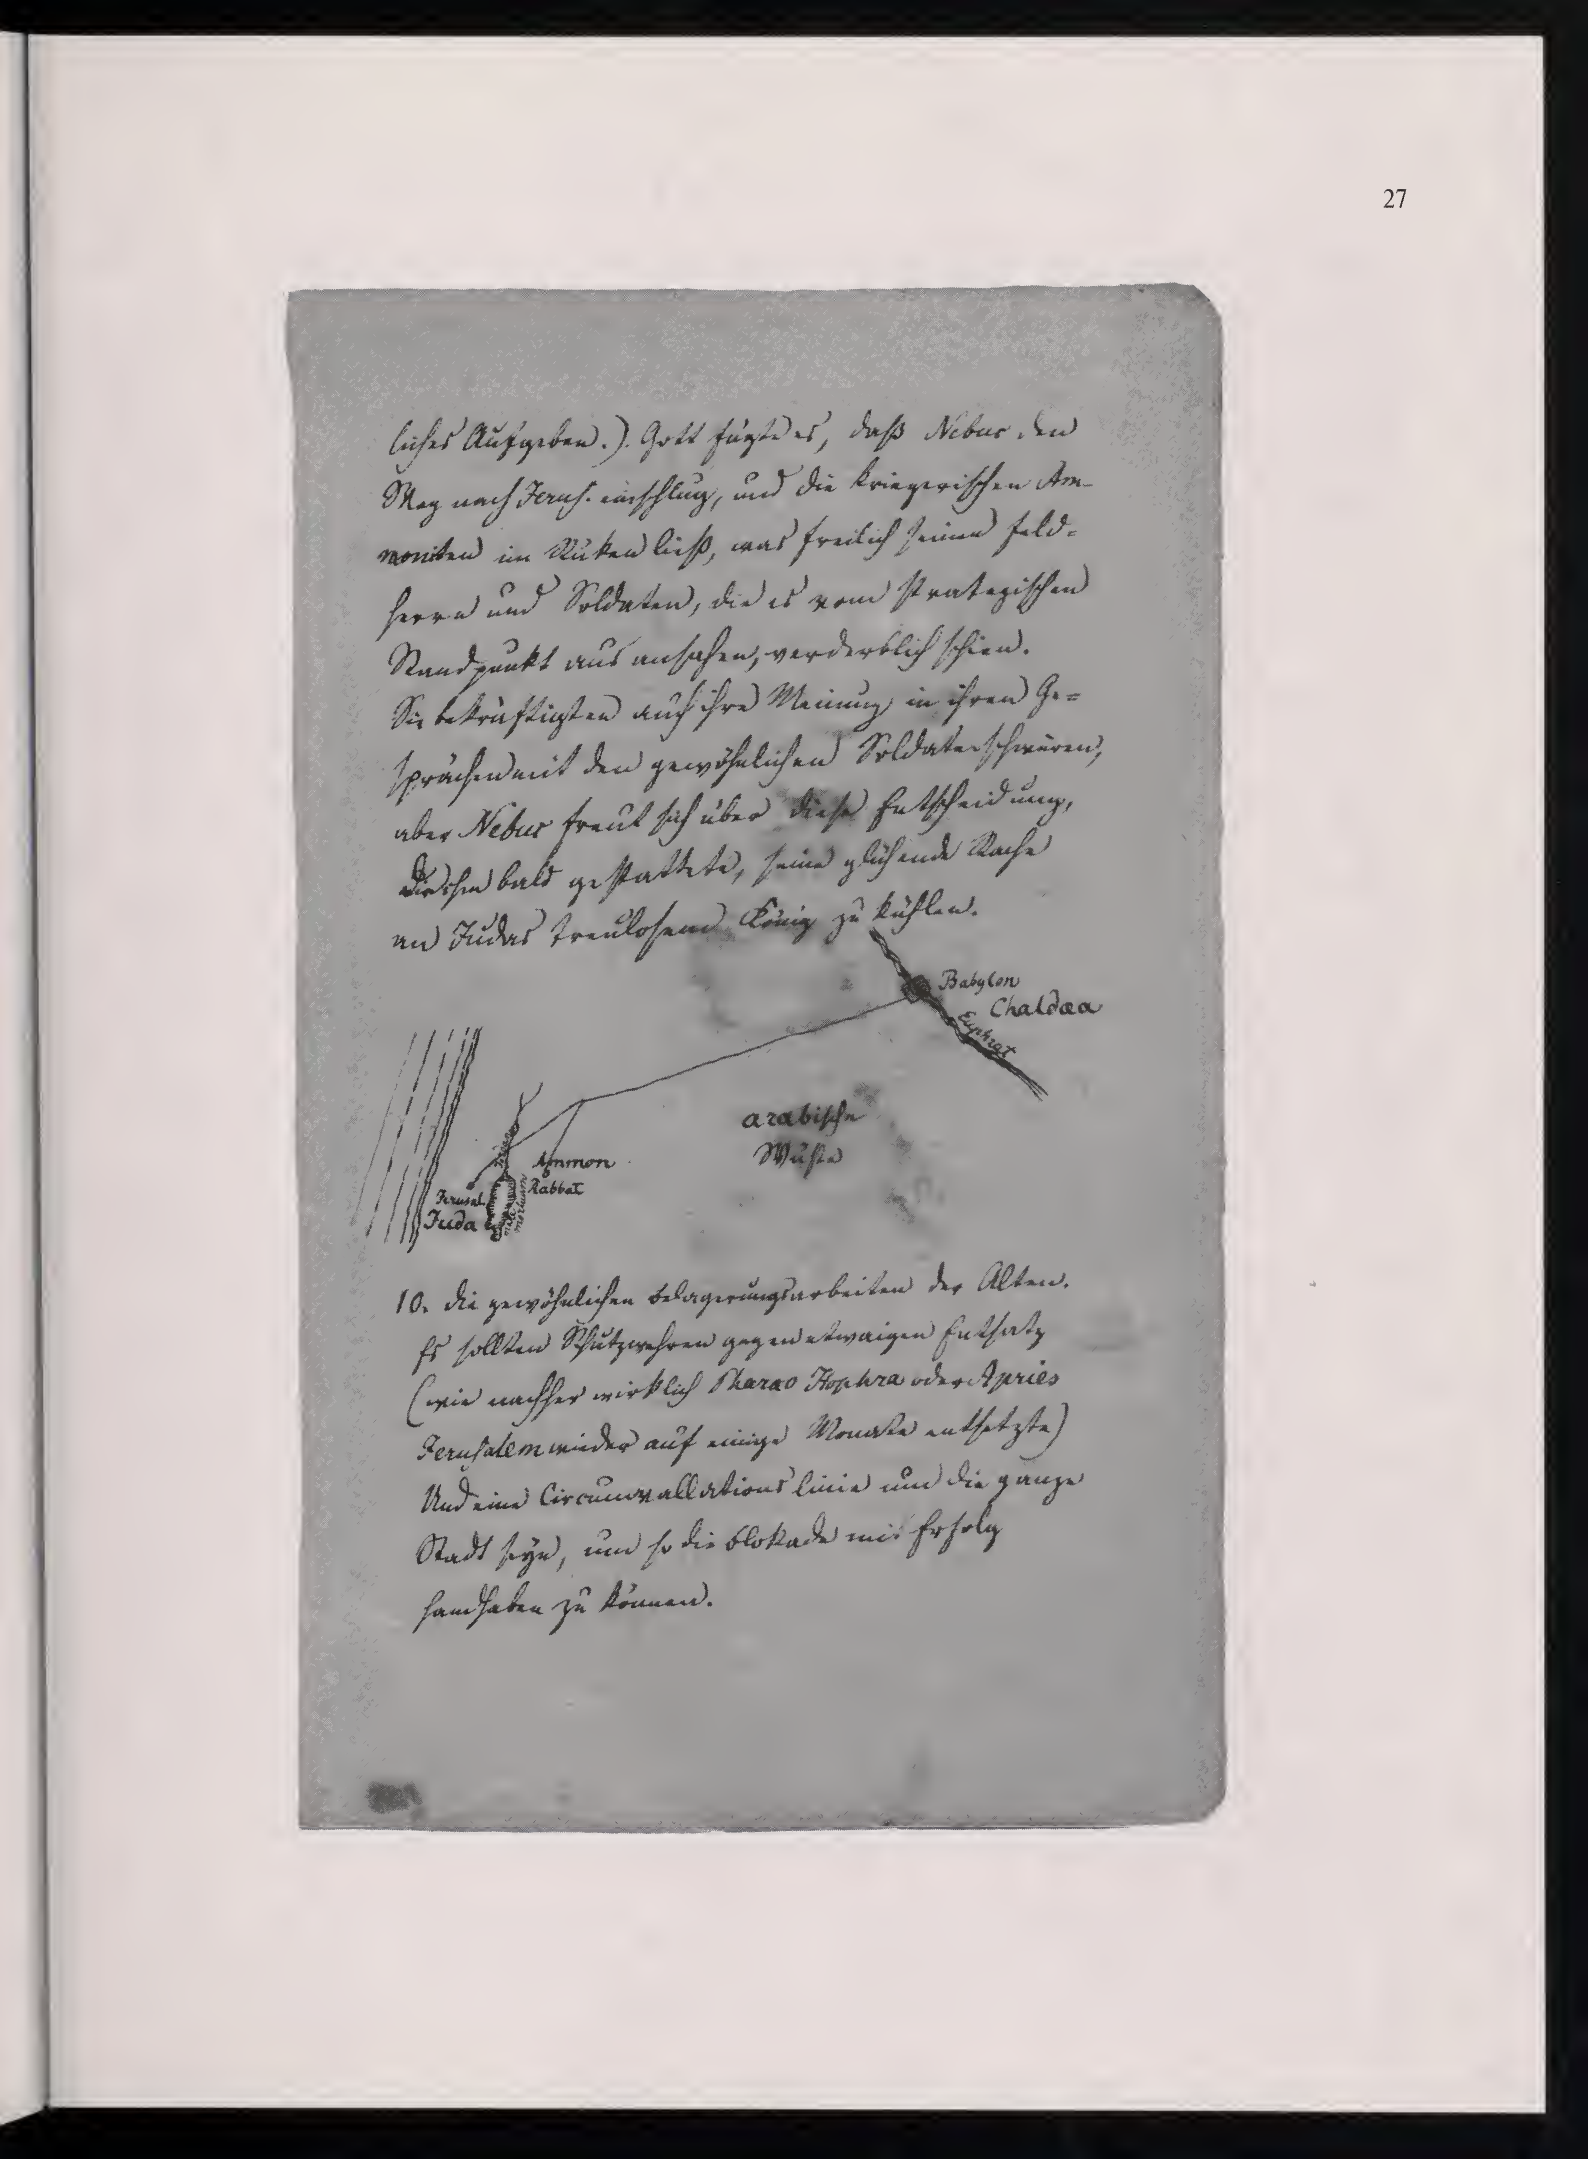 27
liches Aufgeben.). Gott fügte es, daß Nebuc den
Weg nach Jerus. einschlug, und die kriegerischen Am-
moniten im Rüken ließ, was freilich seinen Feld-
herrn und Soldaten, die es vom strategischen
Standpunkt aus ansahen, verderblich schien.
Sie bekräftigten auch ihre Meinung in ihren Ge-
sprächen mit den gewöhnlichen Soldatenschwüren,
aber Nebuc freut sich über diese Entscheidung,
die ihm bald gestattete, seine glühende Rache
an Judas treulosem König zu kühlen.
Babylon
Chaldæa
Euphrat
arabische
Wüste
Ammon
Rabbat
Jerusal.
Juda
mare
mortuum
10. die gewöhnlichen Belagerungsarbeiten der Alten.
Es sollten Schutzwehren gegen etwaigen Entsatz
(wie nachher wirklich Pharao Hophra oder Apries
Jerusalem wieder auf einige Monate entsetzte)
Und eine Circumvallationslinie um die ganze
Stadt seyn, um so die Blokade mit Erfolg
handhaben zu können.